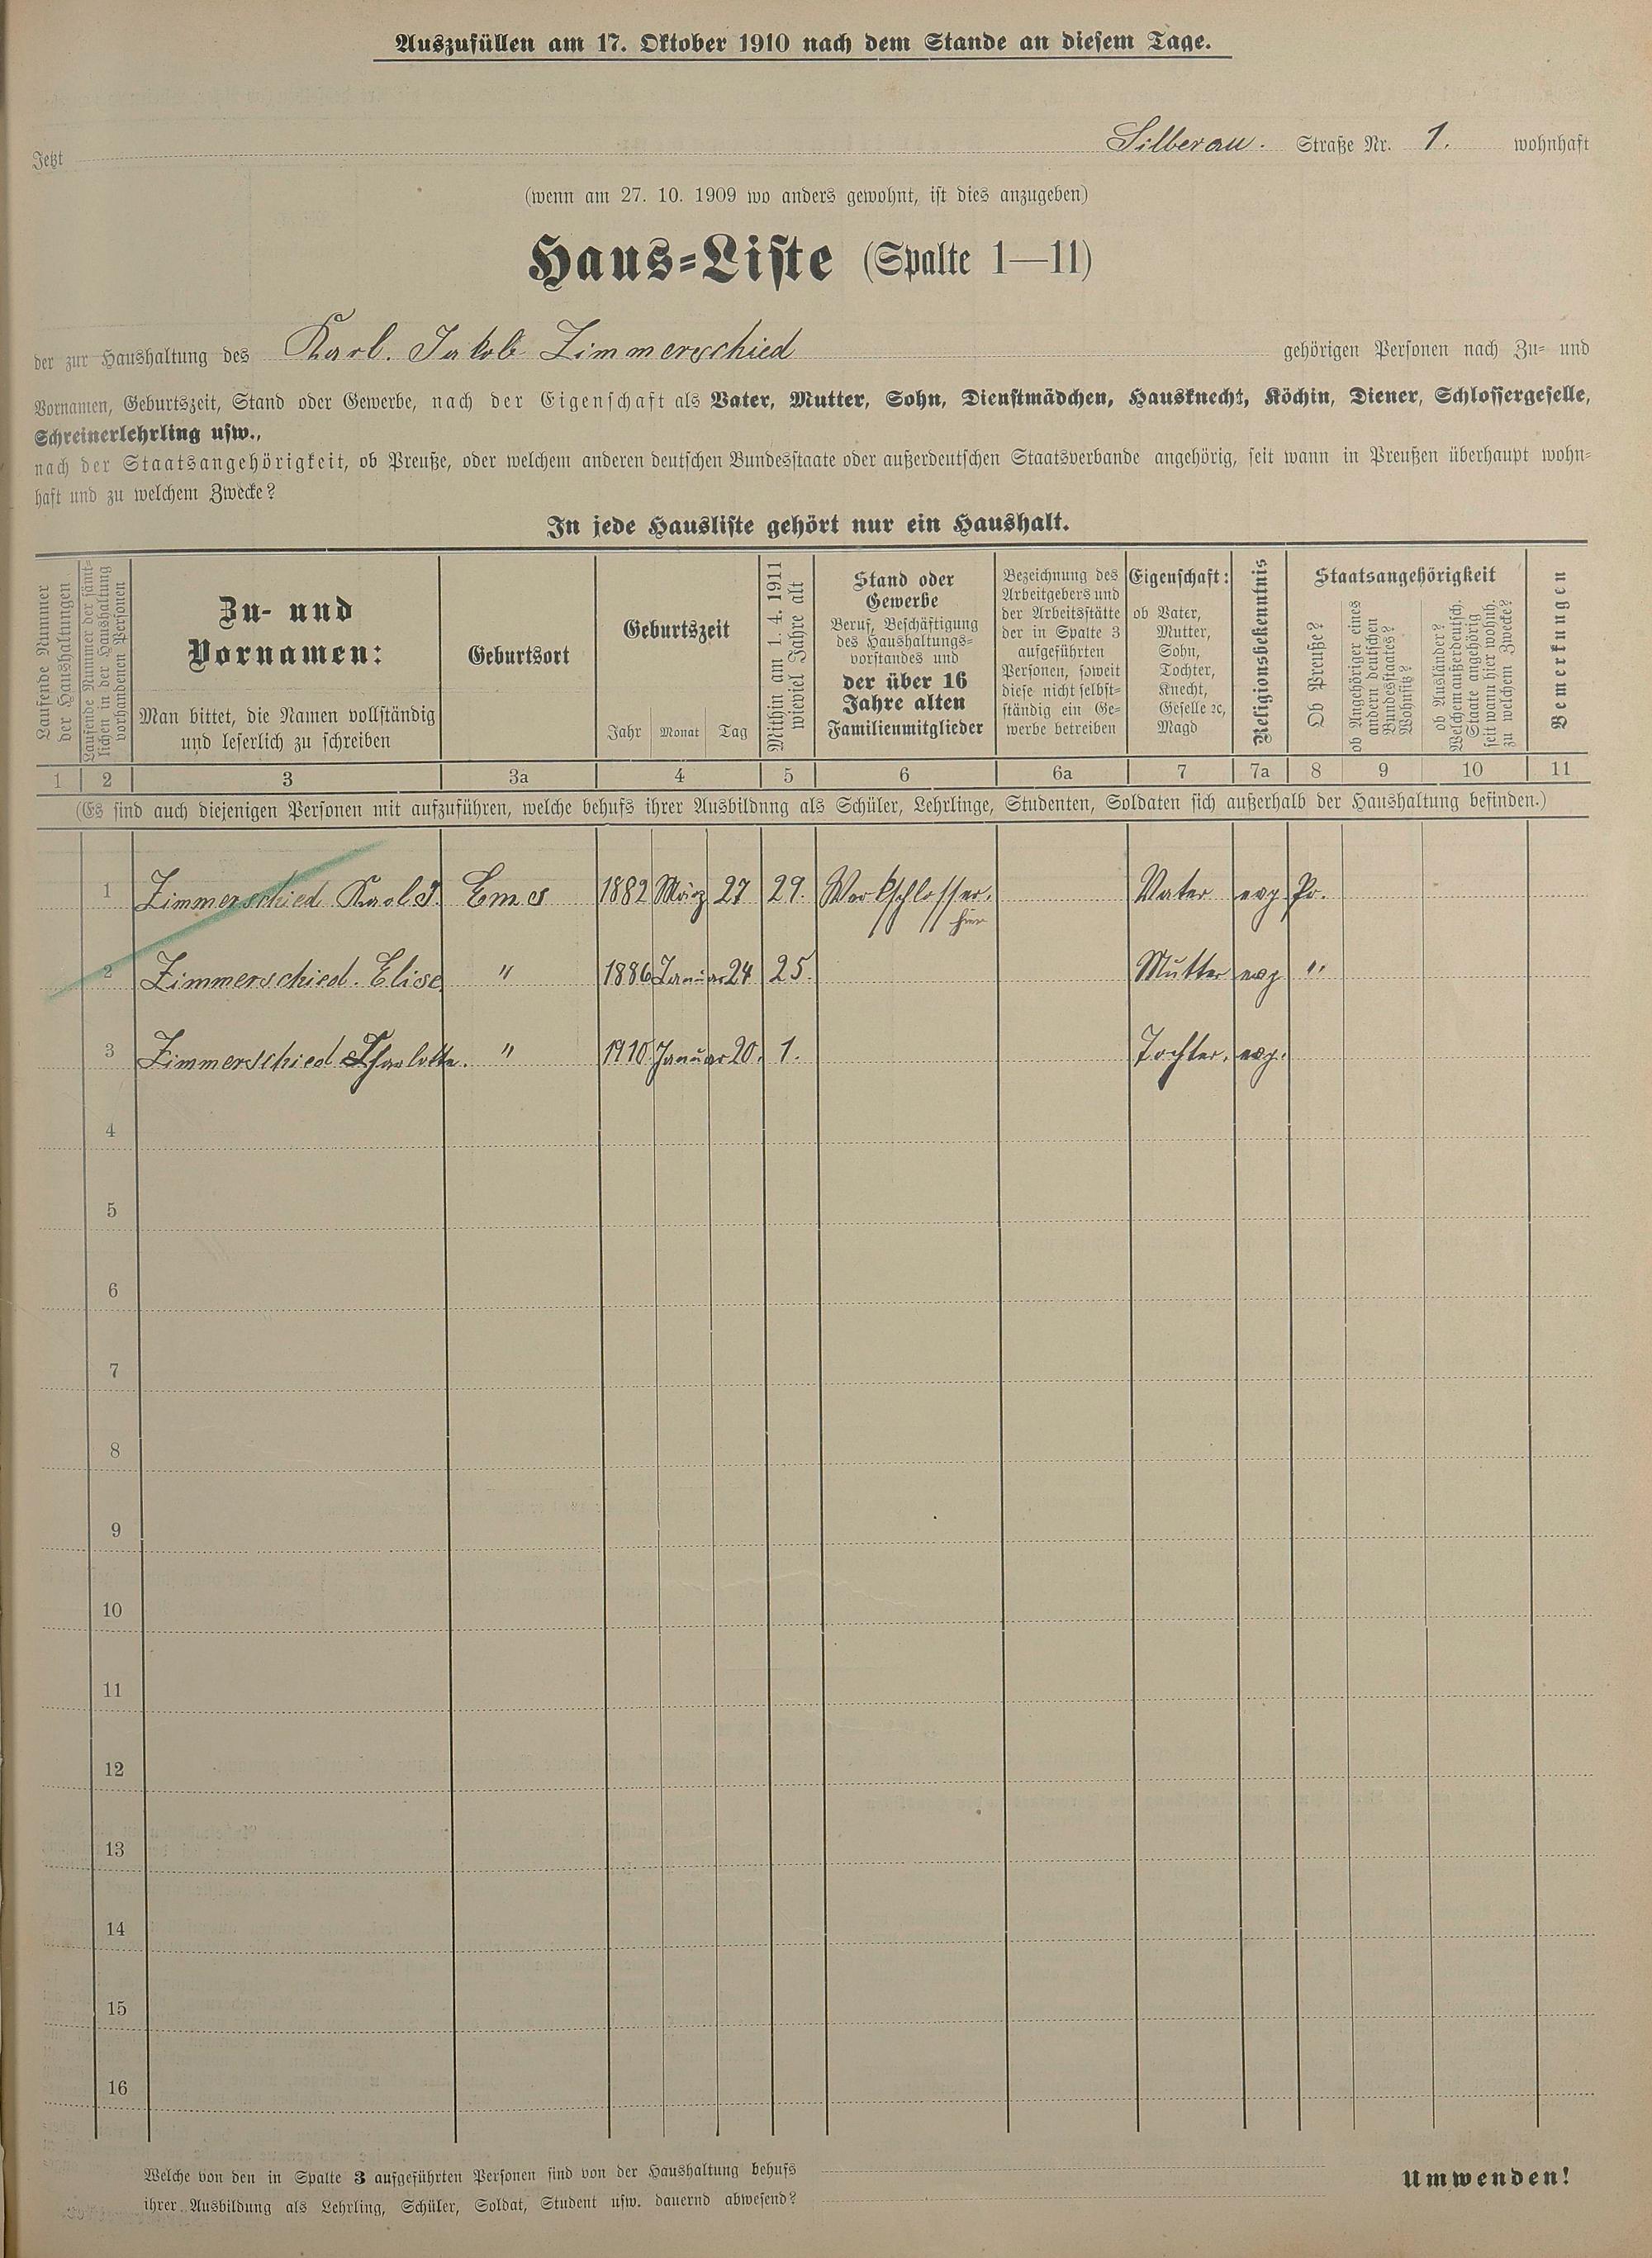 Auszufüllen am 17. Oktober 1910 nach dem Stande an diesem Tage.
Jetzt Silberau. Straße Nr. 1. wohnhaft
(wenn am 27. 10. 1909 wo anders gewohnt, ist dies anzugeben)
Haus-Liste (Spalte 1—11)
der zur Haushaltung des Karl. Jakob Zimmerschied gehörigen Personen nach Zu- und
Vornamen, Geburtszeit, Stand oder Gewerbe, nach der Eigenschaft als Vater, Mutter, Sohn, Dienstmädchen, Hausknecht, Köchin, Diener, Schlossergeselle,
Schreinerlehrling usw.,
nach der Staatsangehörigkeit, ob Preuße, oder welchem anderen deutschen Bundesstaate oder außerdeutschen Staatsverbande angehörig, seit wann in Preußen überhaupt wohn-
haft und zu welchem Zwecke?
In jede Hausliste gehört nur ein Haushalt.
Laufende Nummer
der Haushaltungen
Laufende Nummer der sämt-
lichen in der Haushaltung
vorhandenen Personen
Zu- und
Vornamen:
Man bittet, die Namen vollständig
und leserlich zu schreiben
Geburtsort
Geburtszeit
Jahr Monat Tag
Mithin am 1. 4. 1911
wieviel Jahre alt
Stand oder
Gewerbe
Beruf, Beschäftigung
des Haushaltungs-
vorstandes und
der über 16
Jahre alten
Familienmitglieder
Bezeichnung des
Arbeitgebers und
der Arbeitsstätte
der in Spalte 3
aufgeführten
Personen, soweit
diese nicht selbst-
ständig ein Ge-
werbe betreiben
Eigenschaft:
ob Vater,
Mutter,
Sohn,
Tochter,
Knecht,
Geselle ꝛc,
Magd
Religionsbekenntnis
Staatsangehörigkeit
Ob Preuße?
ob Angehöriger eines
andern deutschen
Bundesstaates?
Wohnsitz?
ob Ausländer?
Welchem außerdeutsch.
Staate angehörig
seit wann hier wohnh.
zu welchem Zwecke?
Bemerkungen
1 2 3 3a 4 5 6 6a 7 7a 8 9 10 11
(Es sind auch diejenigen Personen mit aufzuführen, welche behufs ihrer Ausbildung als Schüler, Lehrlinge, Studenten, Soldaten sich außerhalb der Haushaltung befinden.)
1 Zimmerschied Karl J. Ems 1882 März 27 29. Werkschlosser. Vater evg Pr.
hier
2 Zimmerschied. Elise " 1886 Januar 24 25. Mutter evg "
3 Zimmerschied Charlotte. " 1910 Januar 20. 1. Tochter. evg.
4
5
6
7
8
9
10
11
12
13
14
15
16
Welche von den in Spalte 3 aufgeführten Personen sind von der Haushaltung behufs
ihrer Ausbildung als Lehrling, Schüler, Soldat, Student usw. dauernd abwesend?
Umwenden!